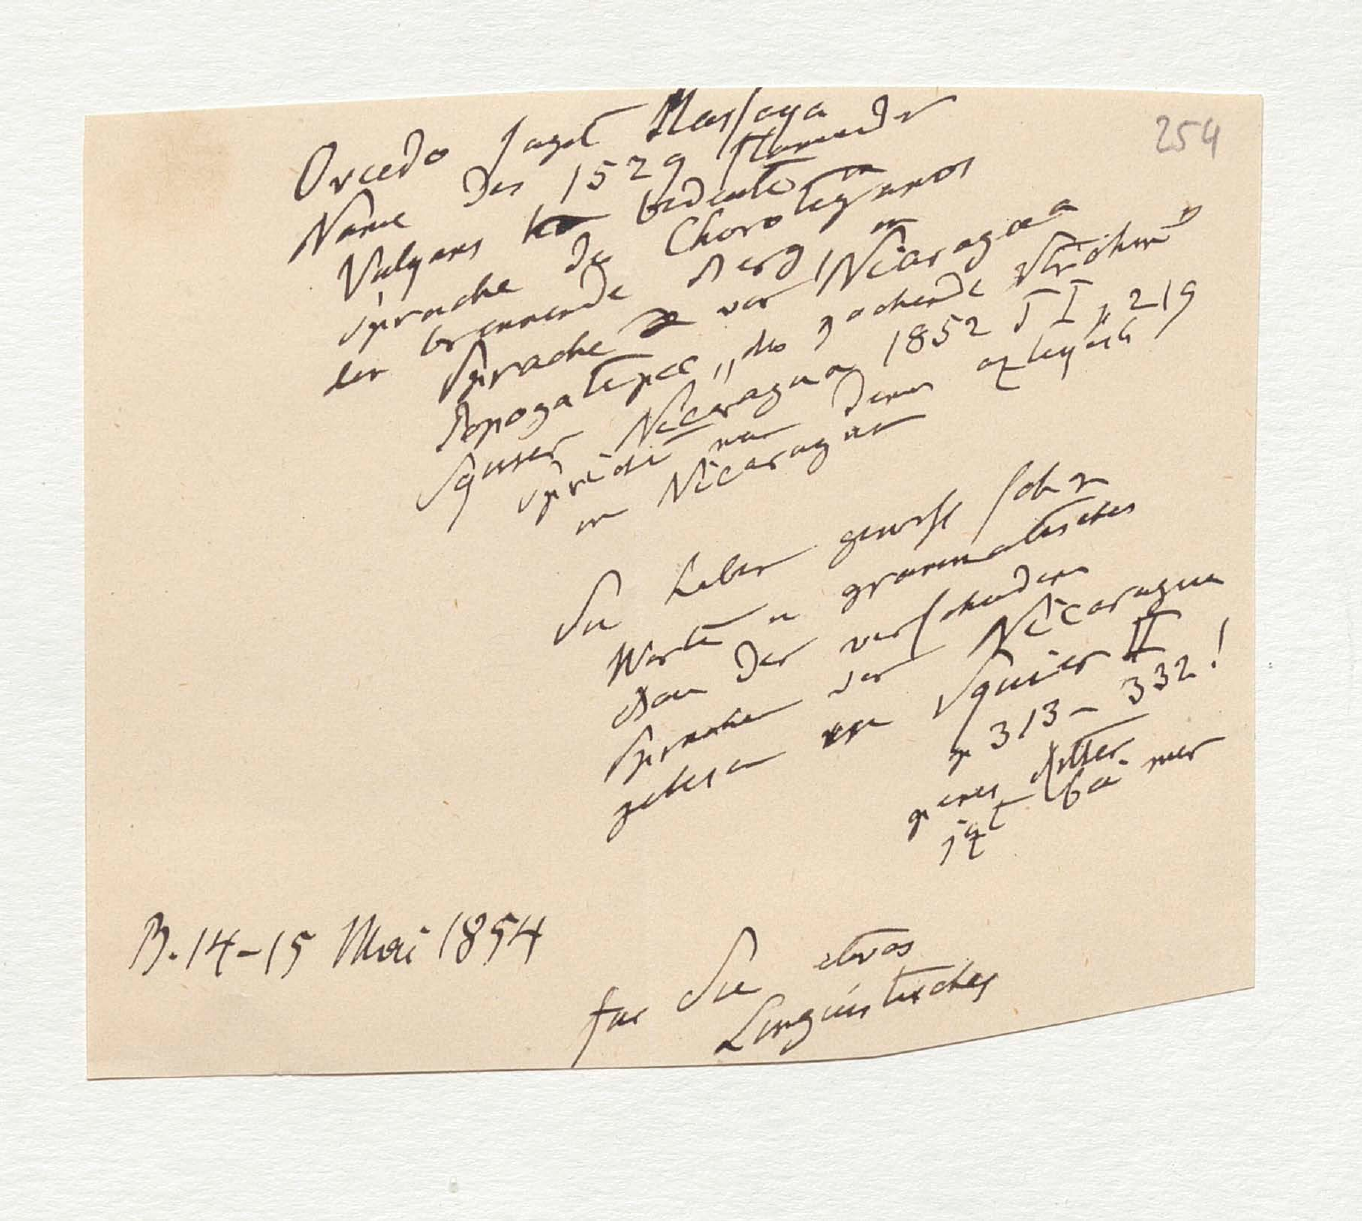 254
Oviedo sagt Massaya
Name des 1529 flamender
Vulkans bedeute in
Sprache der Chorotegannos
der brennende Berg in
Sprache von Nicaragua
Popogatepec „der kochende Ström"
Squier Nicaragua 1852 T II, 219
spricht von denen aztekisch
in Nicaragua
Sie haben gewiss schon
Worte u grammatisches
Bau der verschiedenen
Sprachen der Nicaragua
gelesen von Squier II
p 313–332!
Ritter
jzt bei mir
B. 14–15 Mai 1854
für Sie etwas
Linguistisches